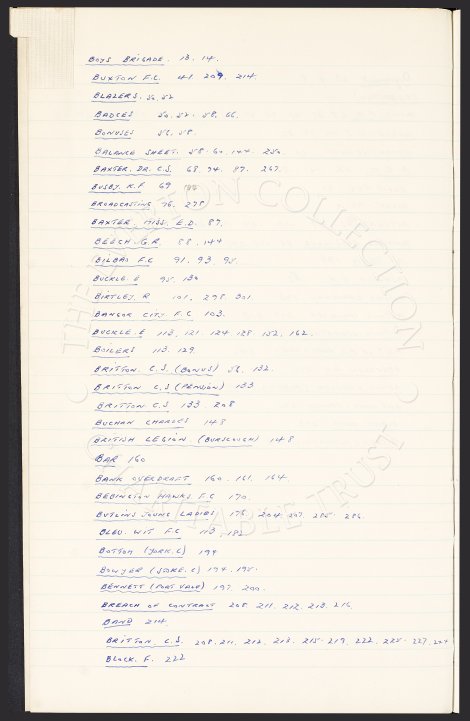 BOYS BRIGADE. 13. 14.
BUXTON F.C. 41. 209. 214
BLAZERS. 50, 52
BADGES 50. 52. 58, 66.
BONUSES 56, 58.
BALANCE SHEET. 58. 60. 144. 250
BAXTER. DR. C.S. 68. 74. 87. 267
BUSBY. K.F 69
BROADCASTING 76. 278
BAXTER. MISS. E.D. 87.
BEECH. G.R. 88. 144
BILBAO F.C 91. 93. 95.
BUCKLE. E 95. 130
BIRTLEY. R 101. 298. 301
BANGOR CITY. F.C 103.
BUCKLE. E 113. 121. 124. 128. 152. 162.
BOILERS 113. 129.
BRITTON. C.S. (BONUS) 56. 132.
BRITTON C.S (PENSION) 133
BRITTON C.S. 133. 208
BUCHAN CHARLES 143
BRITISH LEGION (BURSCOUGH) 148
BAR 160
BANK OVERDRAFT 160. 161. 164
BEBINGTON HAWKS F.C 170.
BUTLINS YOUNG LADIES 176. 204. 207. 285. 286.
BLEU. WIT F.C 113. 182
BOTTOM (YORK.C) 194
BOWYER (STOKE.C) 194. 195.
BENNETT (PORT VALE) 197. 200.
BREACH OF CONTRACT 208. 211. 212. 213. 216.
BAND 214
BRITTON C.S. 208. 211. 212. 213. 215. 219. 222. 225. 227. 224
BLOCK. F. 222
THE COLLECTION
TRUST